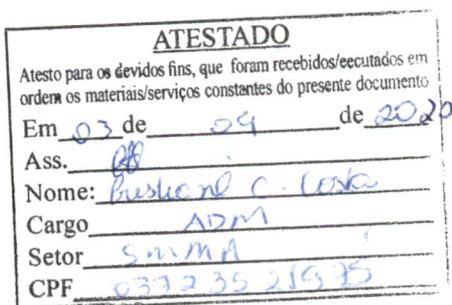 ATESTADO
Atesto para os devidos fins, que foram recebidos/eecutados em
ordem os materiais/serviços constantes do presente documento
Em 03 de 04 de 2020
Ass.
Nome: C. Costa
Cargo ADM
Setor SMMA
CPF